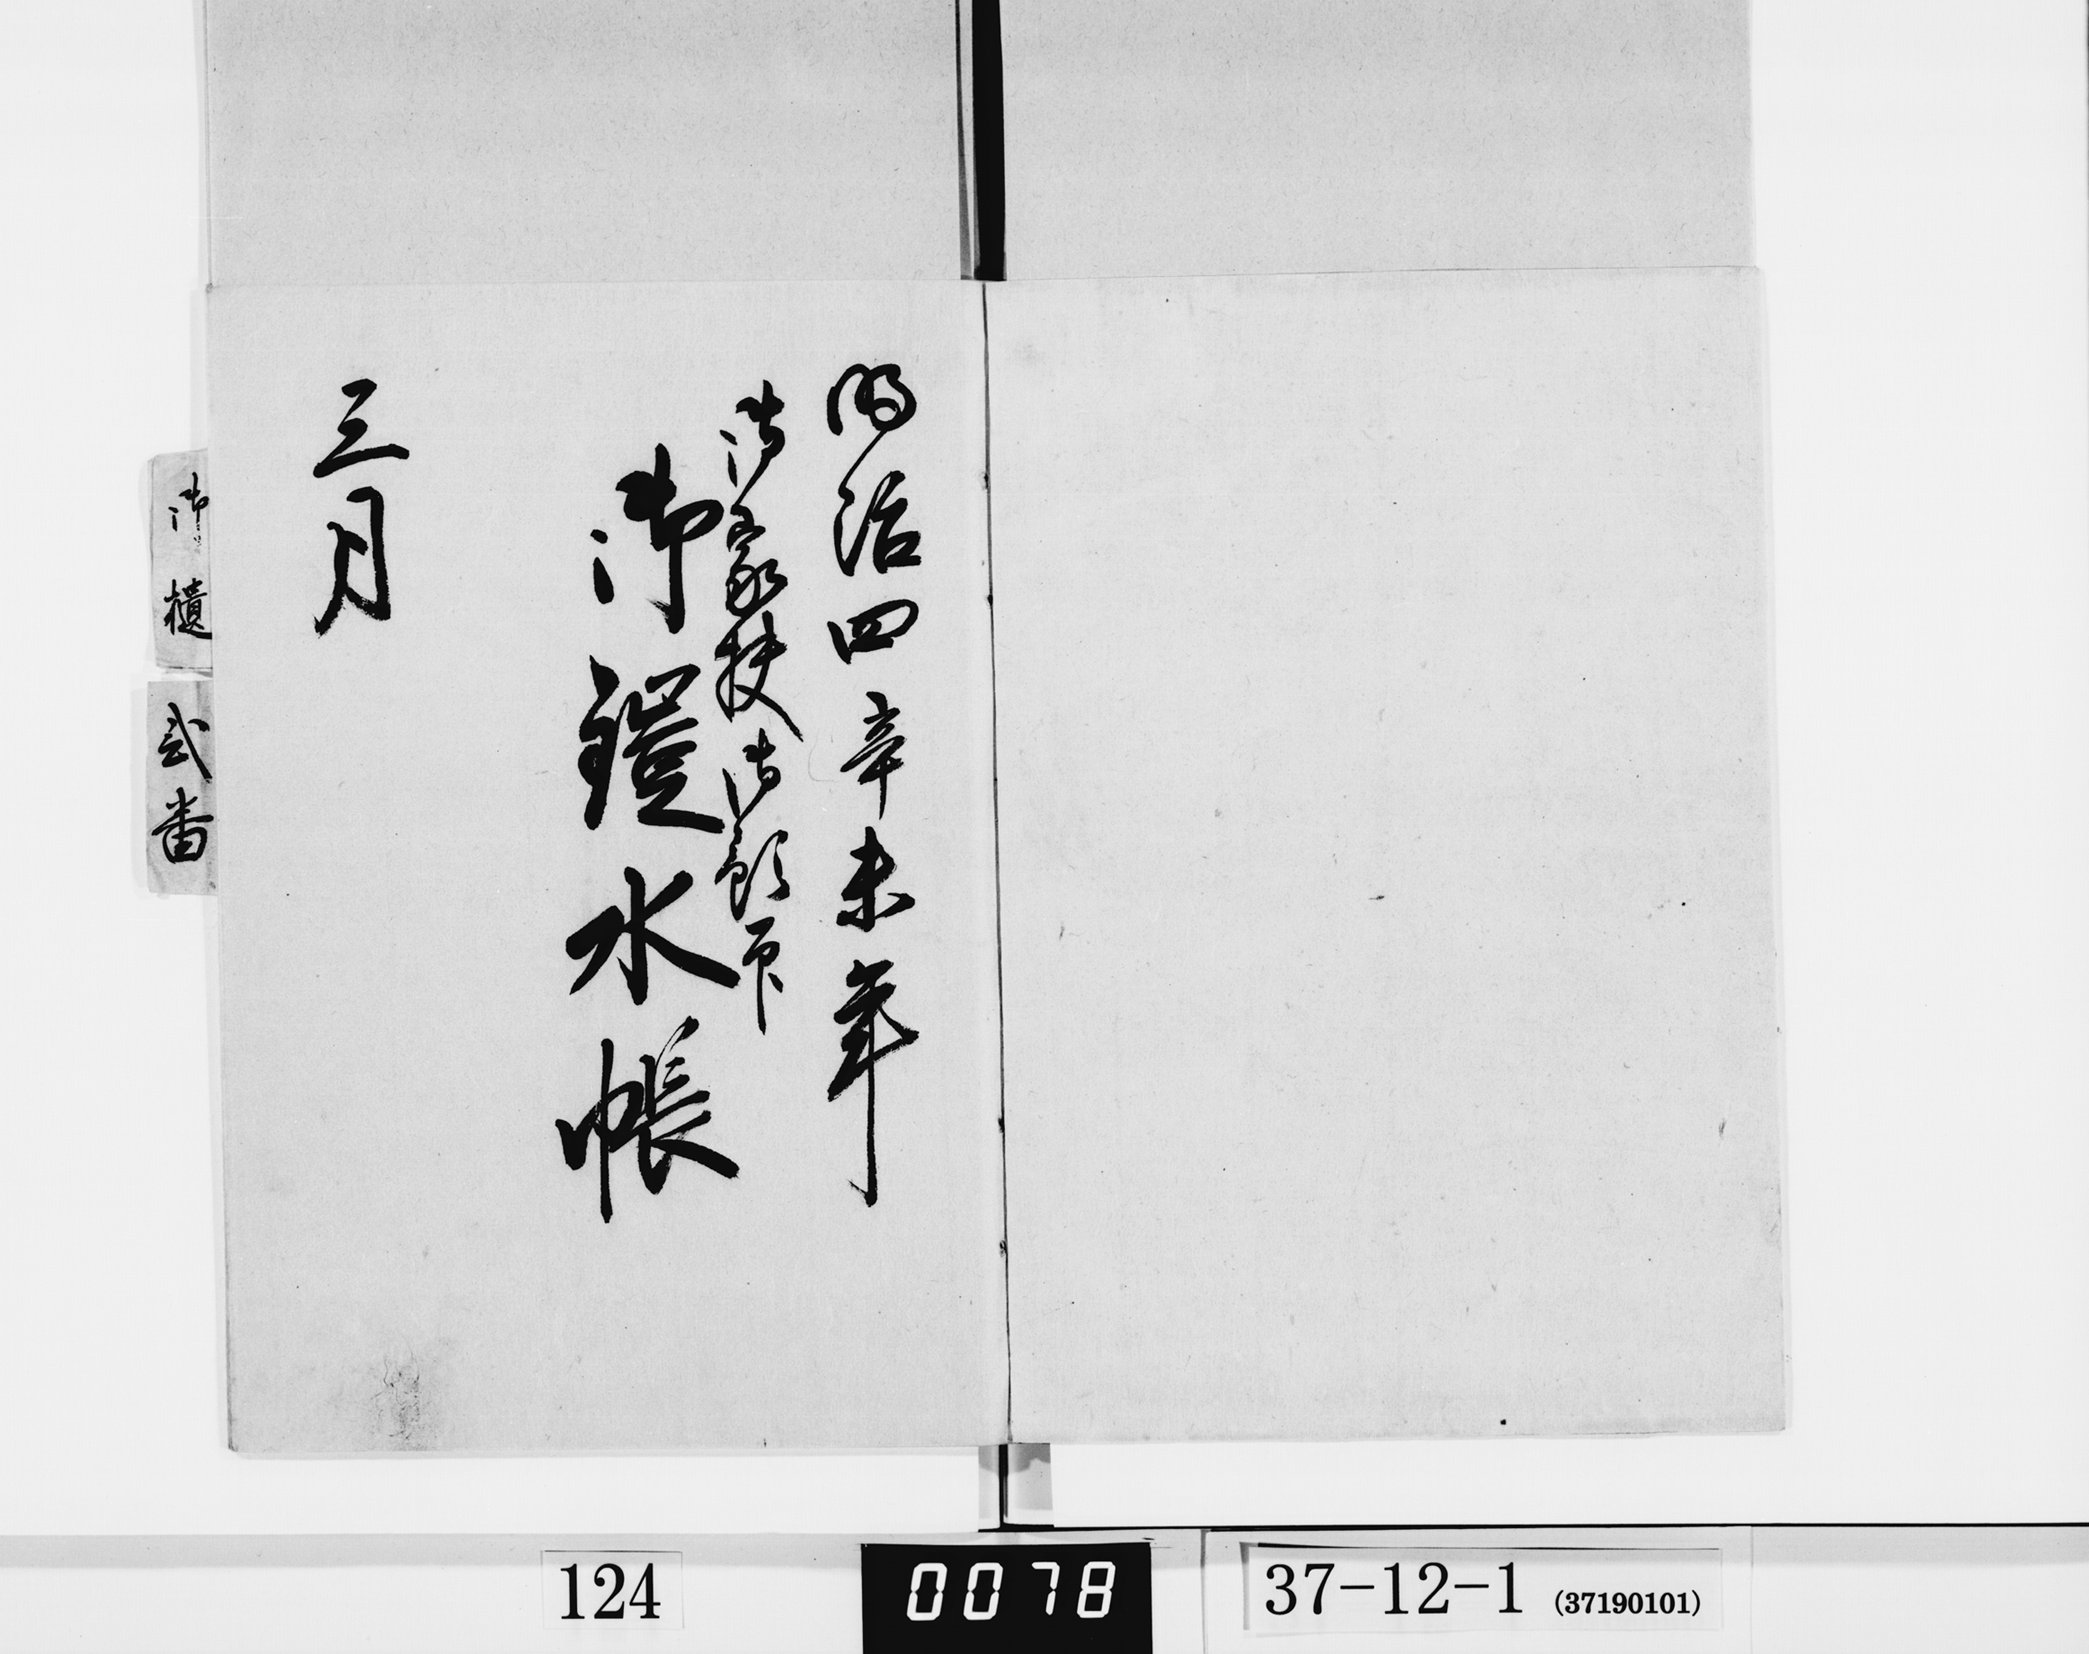 明治四辛未年
御家扶御預下
御鎧水帳
三月
御櫃
弐番
124
0078
37-12-1 (37190101)